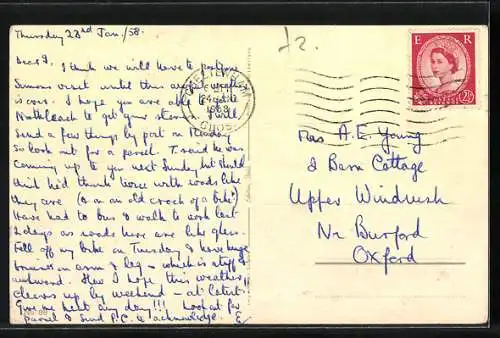 Thursday 23rd Jan./58.
Dear J. I think we will have to postpone
Simons visit until this weather
is over. I hope you are able to get to
Northleach to get your stores. I will
Send a few things by post on Monday
So look out for a parcel. T. said he was
Coming up to you next Sunday but should
think he'd think twice with roads like
they are (& on an old crock of a bike)
Have had to bus & walk to work last
2 days as roads here are like glass.
Fell off my bike on Tuesday & have huge
bruises on arm & leg – which is stiff &
awkward. How I hope this weather
clears up by weekend – at latest.
Give me heat any day!!! Look out for
parcel & send P.C. to acknowledge. E
£2.
CHELTENHAM
GLOS
E R
POSTAGE REVENUE
2½D
Mrs A. E. Young
2 Barn Cottage
Upper Windrush
Nr Burford
Oxford